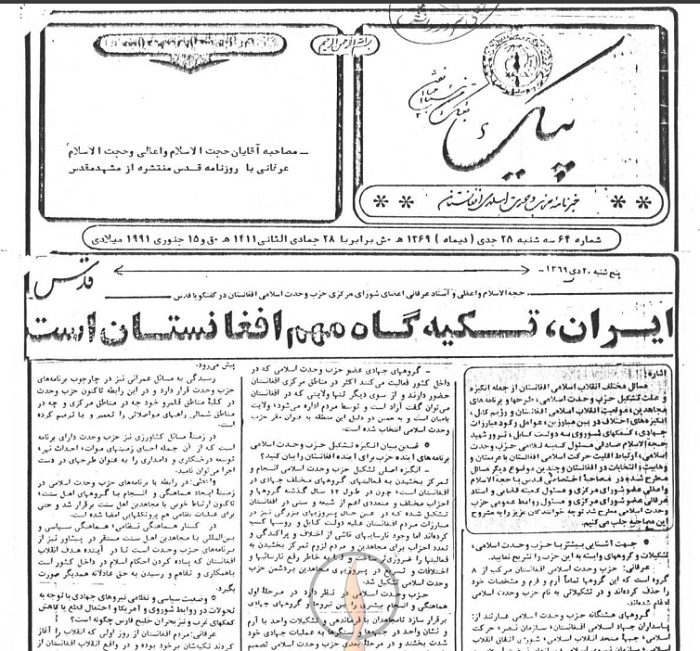 پیک
خبرنامه حزب وحدت اسلامی افغانستان
ـ مصاحبه آقایان حجت الاسلام واعظی وحجت الاسلام
عرفانی با روزنامه قدس منتشره از مشهد مقدس
شماره ۶۴ سه شنبه ۲۵ جدی (دیماه) ۱۳۶۹ هـ ش برابر با ۲۸ جمادی الثانی ۱۴۱۱ هـ ق و ۱۵ جنوری ۱۹۹۱ میلادی
پنج شنبه ۲۰ دی ۱۳۶۹ ـ
قدس
حجة الاسلام واعظی و استاد عرفانی اعضای شورای مرکزی حزب وحدت اسلامی افغانستان در گفتگو با قدس
ایران، تکیه گاه مهم افغانستان است
اشاره:
مسائل مختلف انقلاب اسلامی افغانستان از جمله انگیزه
و علت تشکیل حزب وحدت اسلامی، طرحها و برنامه های
مجاهدین، موقعیت انقلاب اسلامی افغانستان و رژیم کابل،
انگیزه های اختلاف در بین مبارزین، عوامل رکود مبارزات
جهادی، کمکهای شوروی به دولت کابل، ترور شهید
حجة الاسلام صادقی مسئول کمیته نظامی حزب وحدت
اسلامی،
مطرح شده در مصاحبه اختصاصی قدس با حجة الاسلام
واعظی عضو شورای مرکزی و مسئول کمیته قضایی و استاد
عرفانی عضو شورای مرکزی و مسئول روابط عمومی حزب
وحدت اسلامی مطرح شد توجه خوانندگان عزیز را به مشروح
این مصاحبه جلب می کنیم.
● جهت آشنایی بیشتر با حزب وحدت اسلامی،
تشکیلات و گروههای وابسته به این حزب را تشریح نمایید.
عرفانی: حزب وحدت اسلامی افغانستان مرکب از ۸
گروه است که این گروهها تماماً آرم و فرم و مشخصات خود
را حذف کرده اند و در تشکیلاتی به نام حزب وحدت اسلامی
ادغام شده اند.
گروههای هشتگانه حزب وحدت اسلامی عبارتند از:
پاسداران جهاد اسلامی افغانستان، سازمان نصر، حرکت
اسلامی، جبهه متحد انقلاب اسلامی، شورای اتفاق انقلاب
ـ گروههای جهادی عضو حزب وحدت اسلامی که در
داخل کشور فعالیت می کنند اکثر در مناطق مرکزی افغانستان
حضور دارند و از سوی دیگر تنها ولایتی که در افغانستان
می توان گفت آزاد است و توسط مردم اداره می شود؛ ولایت
بامیان است و به همین دو دلیل این منطقه به عنوان مقر حزب
وحدت اسلامی انتخاب شده است.
● ضمن بیان انگیزه تشکیل حزب وحدت اسلامی
برنامه های آینده حزب برای آینده افغانستان را بیان کنید؟
ـ انگیزه اصلی تشکیل حزب وحدت اسلامی انسجام و
تمرکز بخشیدن به فعالیتهای گروههای مختلف جهادی در
افغانستان است؛ چون در طول ۱۲ سال گذشته گروهها و
احزاب مختلف و متعددی اعم از شیعه و سنی در افغانستان
تشکیل شده که در عین حال پیروزیهای بزرگی نیز در
مبارزات مردم افغانستان علیه دولت کابل و روسها کسب
کرده اند اما وجود نارساییهای ناشی از اختلاف و پراکندگی و
تعدد احزاب برای مجاهدین و مردم لزوم تمرکز بخشیدن به
فعالیتها را ضروری ساخت و لذا به خاطر رفع نارسائیها و
اختلافات و تسریع در پیروزی مجاهدین بر دشمن حزب
وحدت اسلامی تشکیل شد.
حزب وحدت اسلامی در نظر دارد در مرحلهٔ اول
هماهنگی و انسجام بیشتری را بین نیرو و گروههای جهادی
برقرار سازد تا مجاهدان با فرماندهی و تشکیلات واحد با آرم
و نشان واحد در جبهه ها و سنگرها به عملیات جهادی خود
شدت بخشند و در مرحلهٔ بعدی حزب وحدت اسلامی تصمیم
پیش می رود.
رسیدگی به مسائل عمرانی نیز در چارچوب برنامه های
حزب وحدت قرار دارد و در این رابطه تاکنون حزب وحدت
در کلیهٔ مناطق قلمرو خود چه در مناطق مرکزی و چه در
مناطق شمالی راههای مواصلاتی را تعمیر و یا ترمیم کرده
است.
در زمینهٔ مسائل کشاورزی نیز حزب وحدت دارای برنامه
است که از آن جمله احیای زمینهای موات، احداث نهر،
توسعه درختکاری و دامداری را به عنوان طرحهای در دست
اجرا می توان نامید.
واعظی: در رابطه با برنامه های حزب وحدت اسلامی در
زمینهٔ ایجاد هماهنگی و انسجام با گروههای اهل سنت،
تاکنون ارتباط خوبی با مجاهدین اهل سنت برقرار شد و حتی
برای عملیات نظامی هم پروتکلهایی امضا شده است.
در کنار هماهنگی نظامی، هماهنگی سیاسی و
بین المللی با مجاهدین اهل سنت مستقر در پیشاور نیز از
برنامه های حزب وحدت است تا در آینده هدف انقلاب
افغانستان که پیاده کردن احکام اسلام در داخل کشور است
با همکاری و تفاهم و رسیدن به حق عادلانه همدیگر صورت
بگیرد.
● وضعیت سیاسی و نظامی نیروهای جهادی با توجه به
تحولات در روابط شوروی و آمریکا و احتمال قطع یا کاهش
کمکهای غرب و نیز بحران خلیج فارس چگونه است؟
عرفانی: مردم افغانستان از روز اولی که انقلاب را آغاز
کردند تکیه شان برخود بوده و در واقع انقلاب افغانستان از